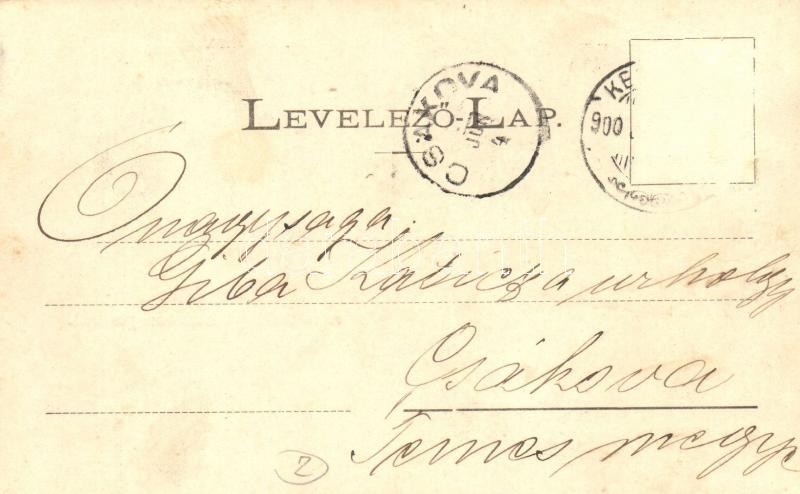 LEVELEZŐ-LAP.
CSAKOVA
JUL
4
KE
900
Önagysaga
Giba Katicza urhölgy
Csákova
Temes megye
2